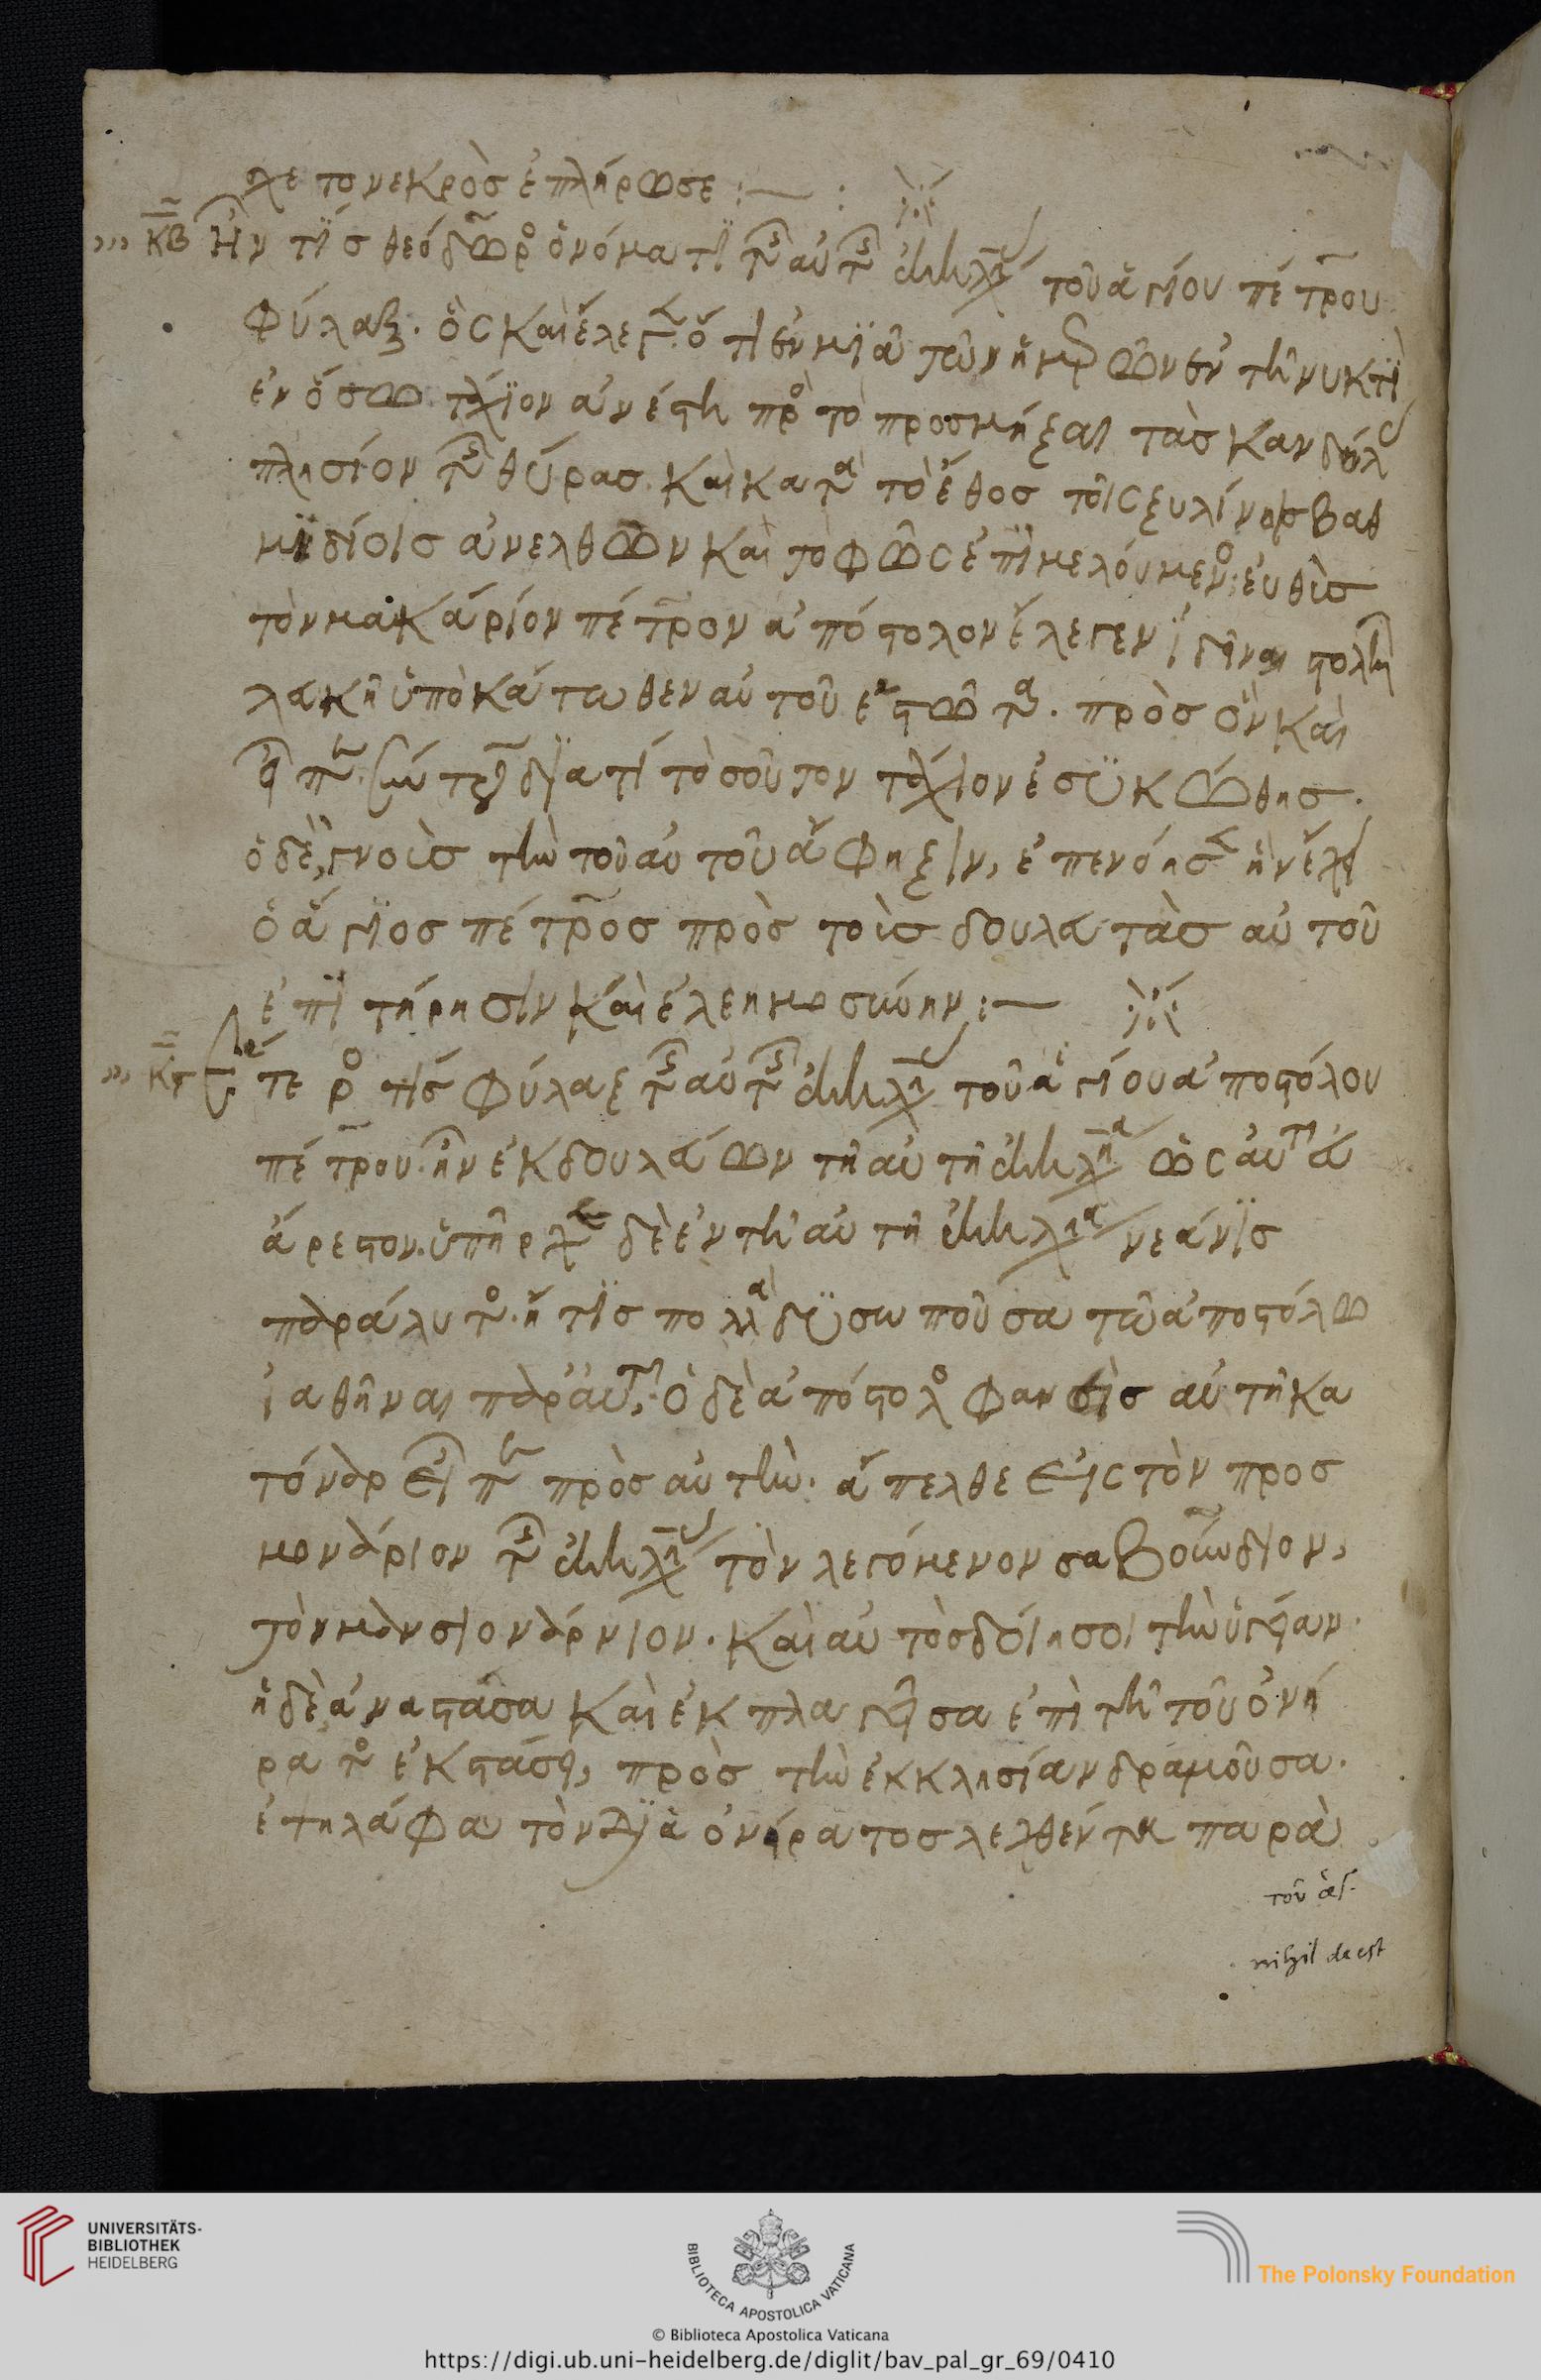 σχε το νεκρὸσ ἐπλήρωσε :— :
κβ Ἦν τίσ θεόδωρο ὀνόματι τῆς αὐτῆς ἐκκλη τοῦ ἁγίου πέτρου
φύλαξ. ὃς καὶ ἔλεγ ὅτι ἐν μιᾶ τῶν ἡμερῶν ἐν τῆ νυκτὶ
ἐν ὅσω τάχιον ἀνέστη πρὸ τὸ προσμήξαι τὰσ κανδύλ
πλησίον τῆς θύρασ. καὶ κατὰ τὸ ἔθοσ τοῖς ξυλίνοισ βαθ
μιδίοισ ἀνελθὼν καὶ τὸ φῶς ἐπιμελούμενο: εὐθὶσ
τὸν μακάριον πέτρον ἀπόστολον ἔλεγεν
λακῆ ὑποκάτωθεν αὐτοῦ ἑστῶτα. πρὸσ ὃν καὶ
διατί τὸ σοῦτον τάχιον ἐσυκώθησ.
ὁ δὲ, γνοὶσ τὴν τοῦ αὐτοῦ ἄφηξιν, ἐπενόησ ἦν ἔλθ
ὁ ἅγιοσ πέτροσ πρὸσ τοὶσ δουλα τὰσ αὐτοῦ
ἐπιτήρησιν καὶ ἐλεημοσύνην :—
κγ ἕτερο τίσ φύλαξ τῆς αὐτῆς ἐκκλη τοῦ ἁγίου ἀποστόλου
πέτρου. ἦν ἐκδουλάων τῆ αὐτῆ ἐκκλη ὡς αὐτ ά
άρεστον. ὑπῆρχ δὲ ἐν τῆ αὐτῆ ἐκκλη νεάνισ
παράλυτο. ἥτισ πολλὰ δυσωποῦσα τῶ ἀποστόλω
ἰαθῆναι παρ' αὐτ, ὁ δὲ ἀπόστολο φανεὶσ αὐτῆ κα
τόναρ εἶπ πρὸσ αὐτὴν. ἄπελθε εἰς τὸν προσ
μονάριον τῆς ἐκκλη τὸν λεγόμενον σαβούνδιον,
τὸν μανσιονάρνιον. καὶ αὐτὸσ δοίη σοι τὴν ὑγείαν.
ἡ δὲ ἀναστᾶσα καὶ ἐκπλαγεῖσα ἐπὶ τῆ τοῦ ὀνή
ρατο ἐκστάσει, πρὸσ τὴν ἐκκλησίαν δραμοῦσα.
ἐτηλάφα τὸν διὰ ὀνείρατοσ λελθέντα παρὰ
τοῦ ἁγ.
nihil deest
UNIVERSITÄTS-
BIBLIOTHEK
HEIDELBERG
BIBLIOTECA APOSTOLICA VATICANA
The Polonsky Foundation
© Biblioteca Apostolica Vaticana
https://digi.ub.uni-heidelberg.de/diglit/bav_pal_gr_69/0410